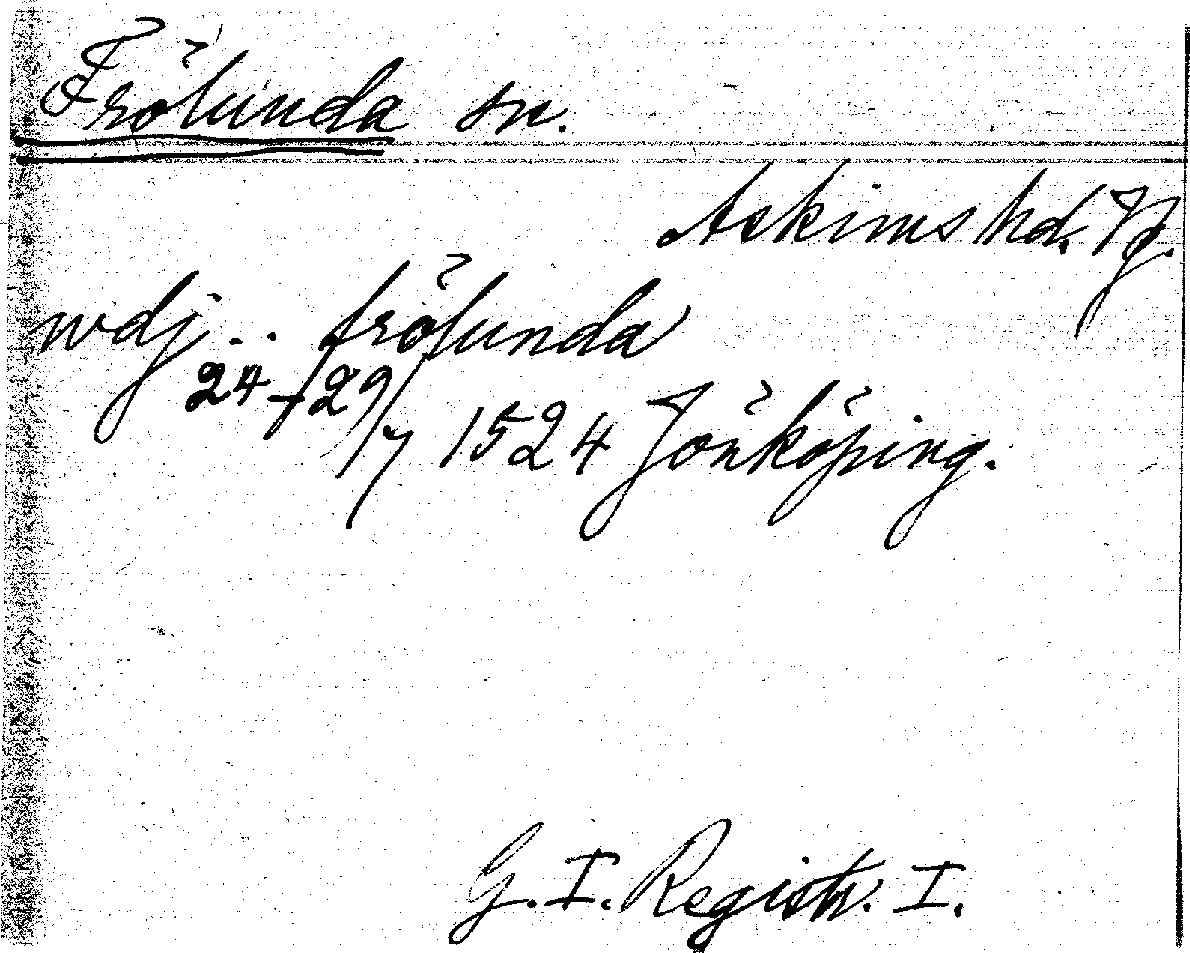 Frölunda sn.
Askims hd. Vg.
wdj .. frölunda
24-29/7 1524 Jönköping.
G. I. Registr. I.